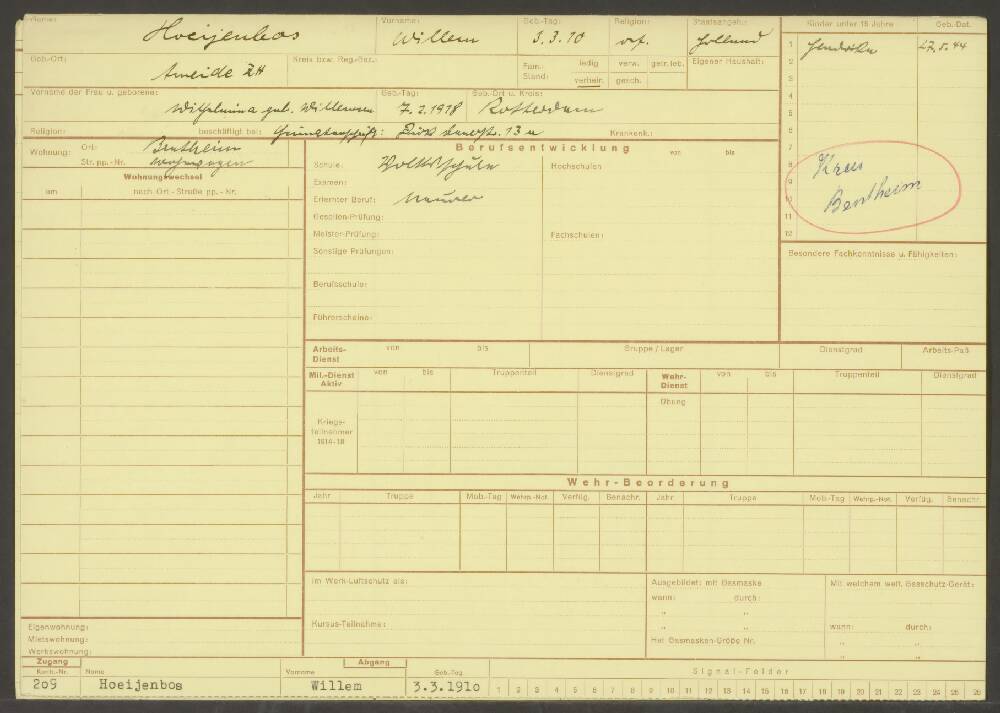 Name: Vorname: Geb.-Tag: Religion: Staatsangeh.: Kinder unter 18 Jahre Geb.-Dat.
Hoeijenbos Willem 3.3.10 ref. Holland
1 27.5.44
Geb.-Ort: Kreis bzw. Reg.-Bez.: Fam.-Stand: ledig verw. getr. leb. Eigener Haushalt: 2
Ameide ZH verheir. gesch. 3
Vorname der Frau u. geborene: Geb.-Tag: Geb.-Ort u. Kreis: 4
Wilhelmina geb. 7.2.1918 Rotterdam 5
Religion: beschäftigt bei: 13 a Krankenk.: 6
Wohnung: Ort: Bentheim
Str. pp.-Nr. Wohnwagen
Berufsentwicklung von bis 7
Schule: Volksschule Hochschulen 8
Kreis
Bentheim
Wohnungswechsel
am nach Ort - Straße pp. - Nr.
Examen: 9
Erlernter Beruf: Maurer 10
Gesellen-Prüfung: 11
Meister-Prüfung: Fachschulen: 12
Sonstige Prüfungen:
Besondere Fachkenntnisse u. Fähigkeiten:
Berufsschule:
Führerscheine:
Arbeits-Dienst von bis Gruppe / Lager Dienstgrad Arbeits-Paß
Mil.-Dienst Aktiv von bis Truppenteil Dienstgrad Wehr-Dienst von bis Truppenteil Dienstgrad
Übung
Kriegs-
teilnehmer
1914-18
Wehr-Beorderung
Jahr Truppe Mob.-Tag Wehrp.-Not. Verfüg. Benachr. Jahr Truppe Mob.-Tag Wehrp.-Not. Verfüg. Benachr.
Im Werk-Luftschutz als: Ausgebildet: mit Gasmaske Mit welchem weit. Gasschutz-Gerät:
wann: durch:
" "
Kursus-Teilnahme: " " wann: durch:
Hat Gasmasken-Größe Nr. " "
" "
Eigenwohnung:
Mietswohnung:
Werkswohnung:
Zugang Abgang Signal-Felder
Karth.-Nr. Name Vorname Geb.-Tag
209 Hoeijenbos Willem 3.3.1910 1 2 3 4 5 6 7 8 9 10 11 12 13 14 15 16 17 18 19 20 21 22 23 24 25 26